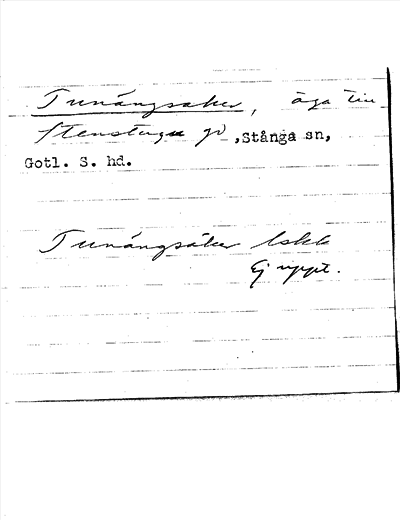 Tunängsåker, äga till
Stenstugu gd, Stånga sn,
Gotl. S. hd.
Tunängsåker Lskk
Ej uppt.